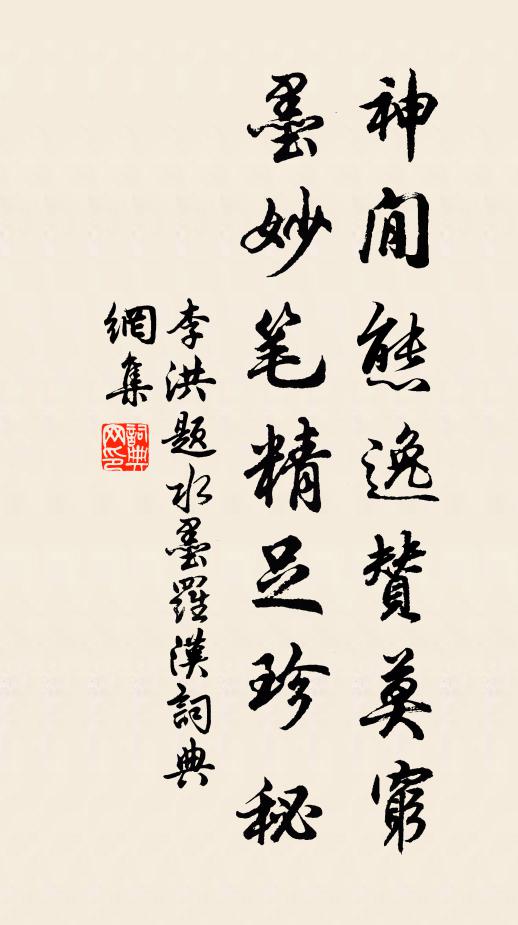 神閒態逸赞莫窮
墨妙笔精足珍秘
李洪题水墨羅漢詞典
網集
詞典
网印